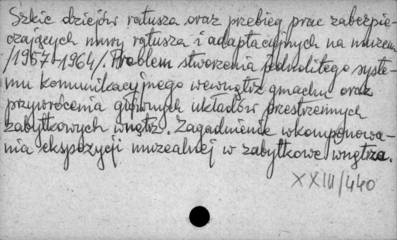 Szkic dziejów ratusza oraz przebieg prac zabezpie-
czających mury ratusza i adaptacyjnych na muzeum
/1954-1964/. Problem stworzenia jednolitego syste-
mu komunikacyjnego wewnątrz gmachu oraz
przywrócenia głównych układów przestrzennych
zabytkowych wnętrz. Zagadnienie wkomponowa-
nia ekspozycji muzealnej w zabytkowe wnętrza.
XXIII/440